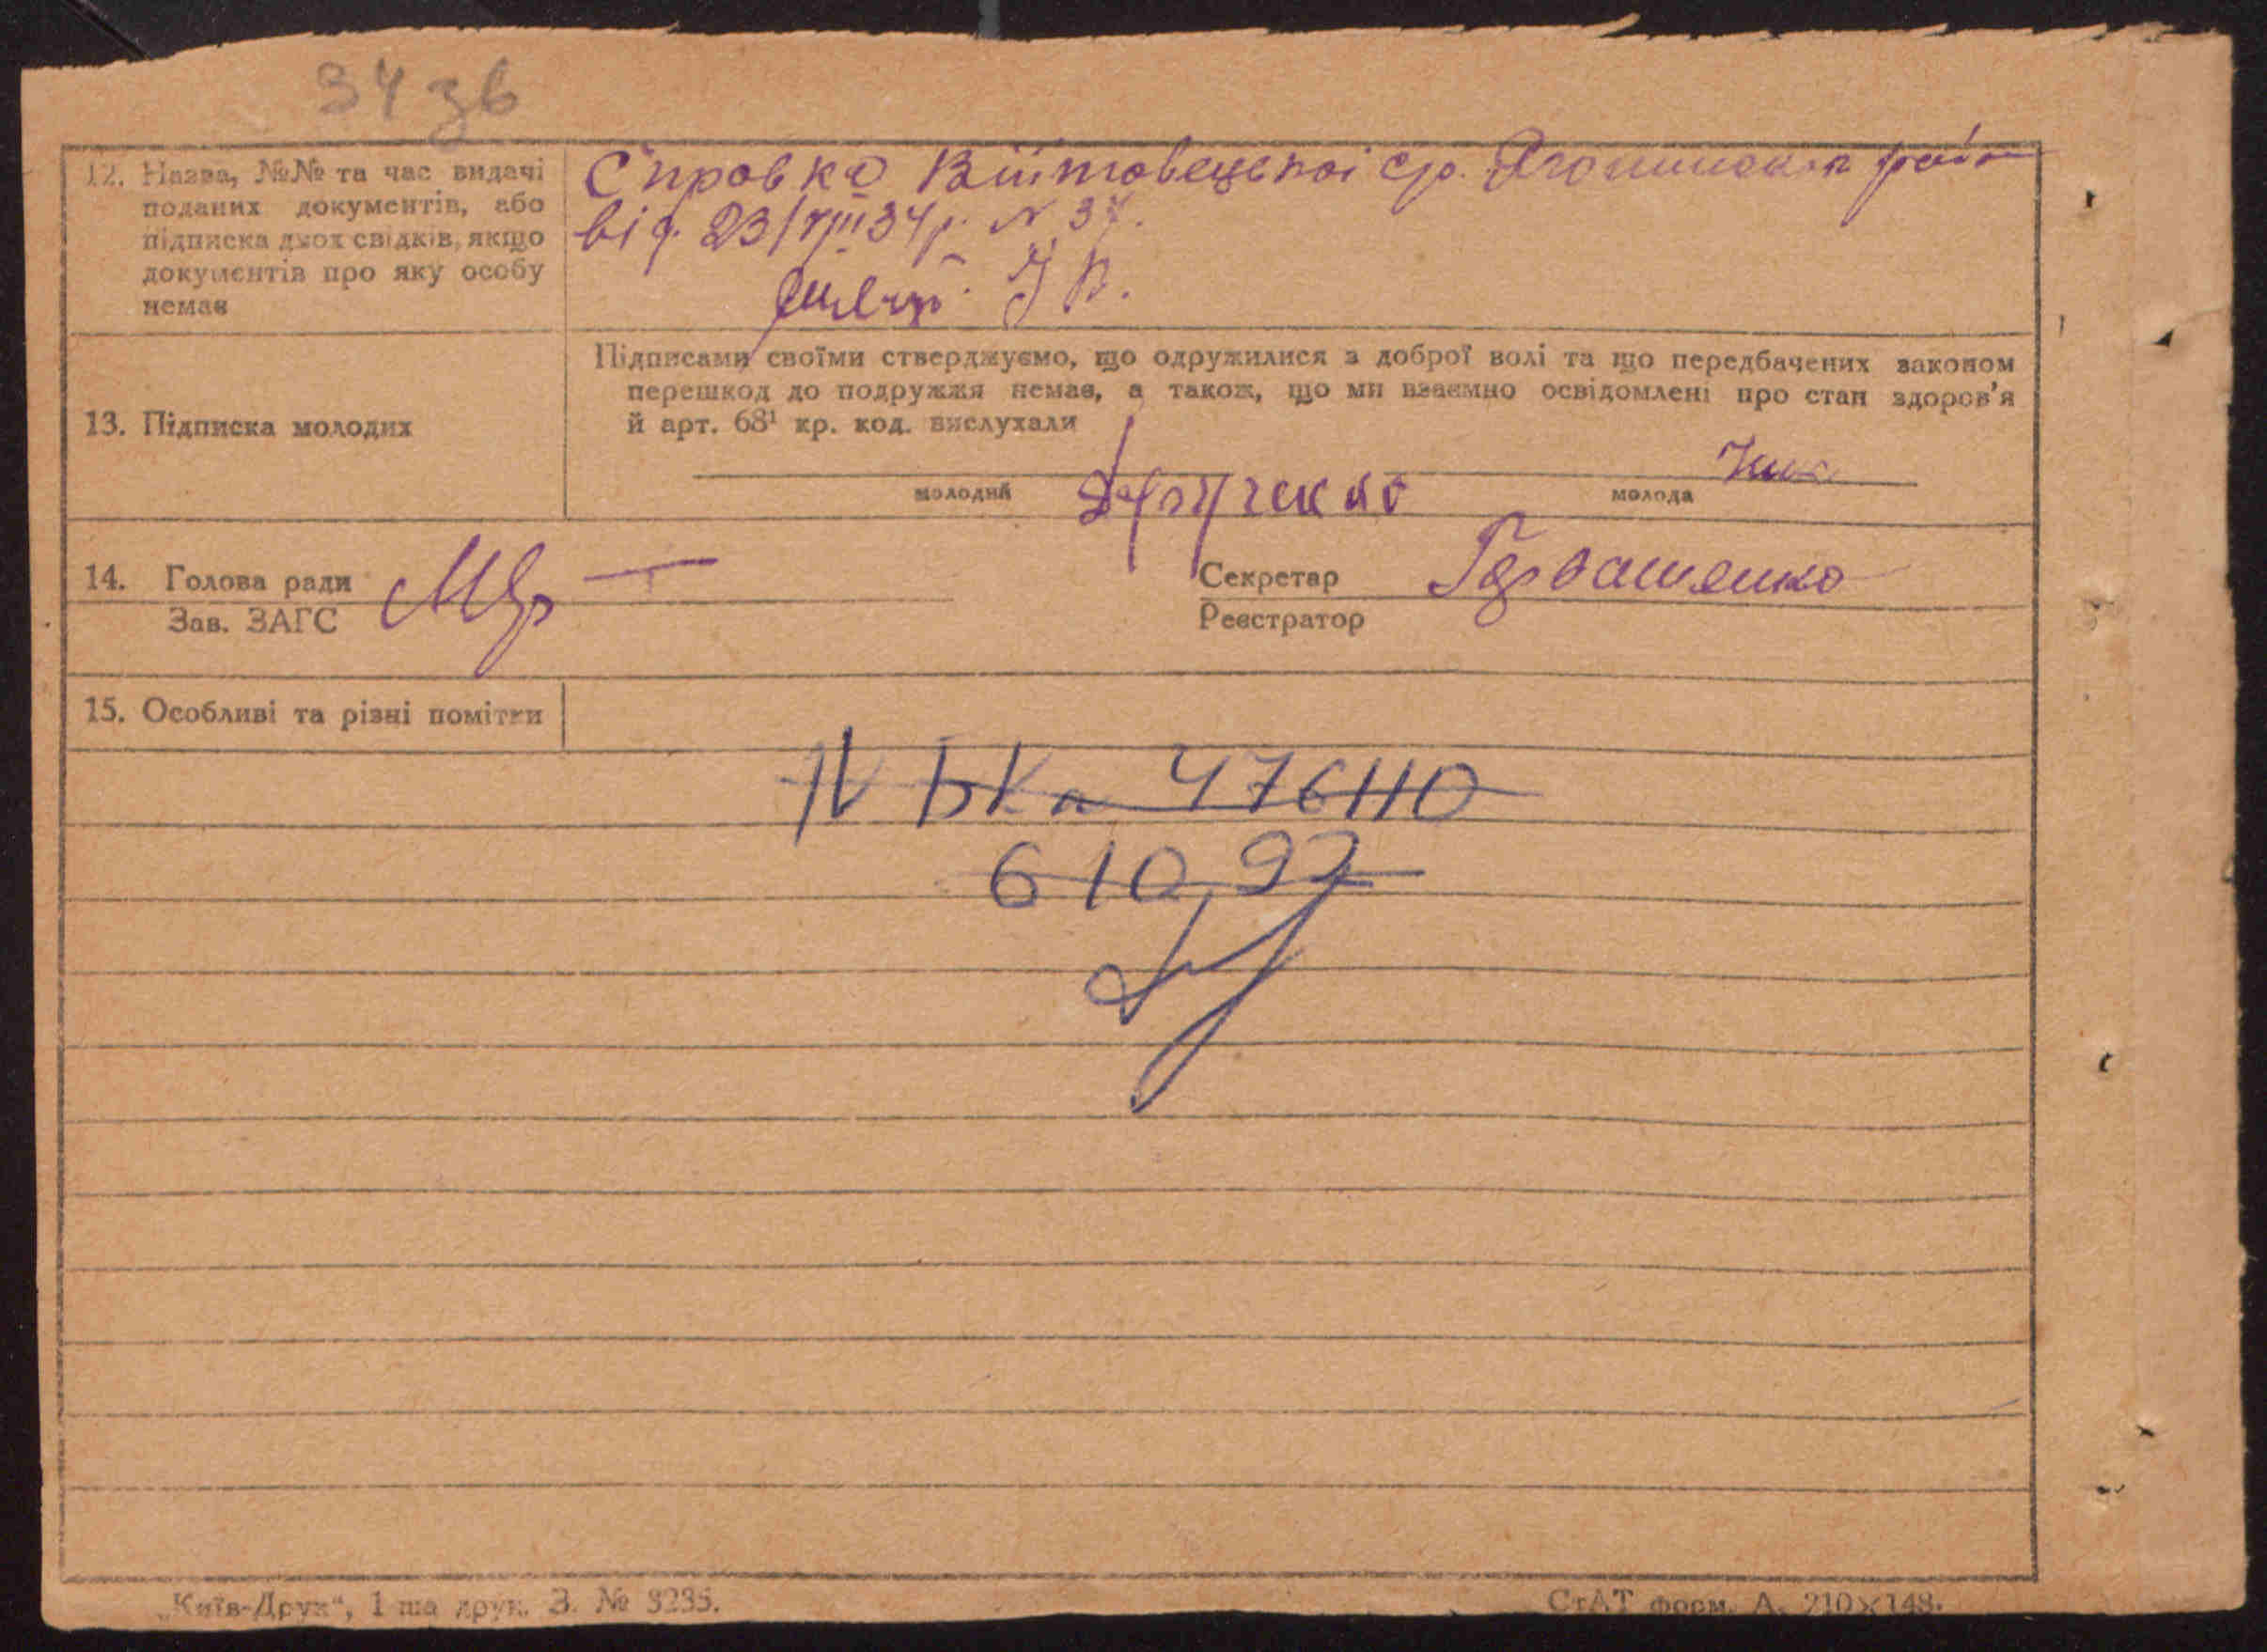 34 зв
12. Назва, №№ та час видачі
поданих документів, або
підписка двох свідків, якщо
документів про яку особу
немає
Справка Війтовецької с/р. Яготинськ. рай.
від. 23/VIII 34 р. N 37.
13. Підписка молодих
Підписами своїми стверджуємо, що одружилися з доброї волі та що передбачених законом
перешкод до подружжя немає, а також, що ми взаємно освідомлені про стан здоров'я
й арт. 68¹ кр. код. вислухали
молодий
молода
14. Голова ради
Зав. ЗАГС
Секретар
Реєстратор
15. Особливі та різні помітки
N БК 476110
6 10 92
„Київ-Друк“, 1 ша друк. З. № 3235.
СтАТ форм. А. 210×148.